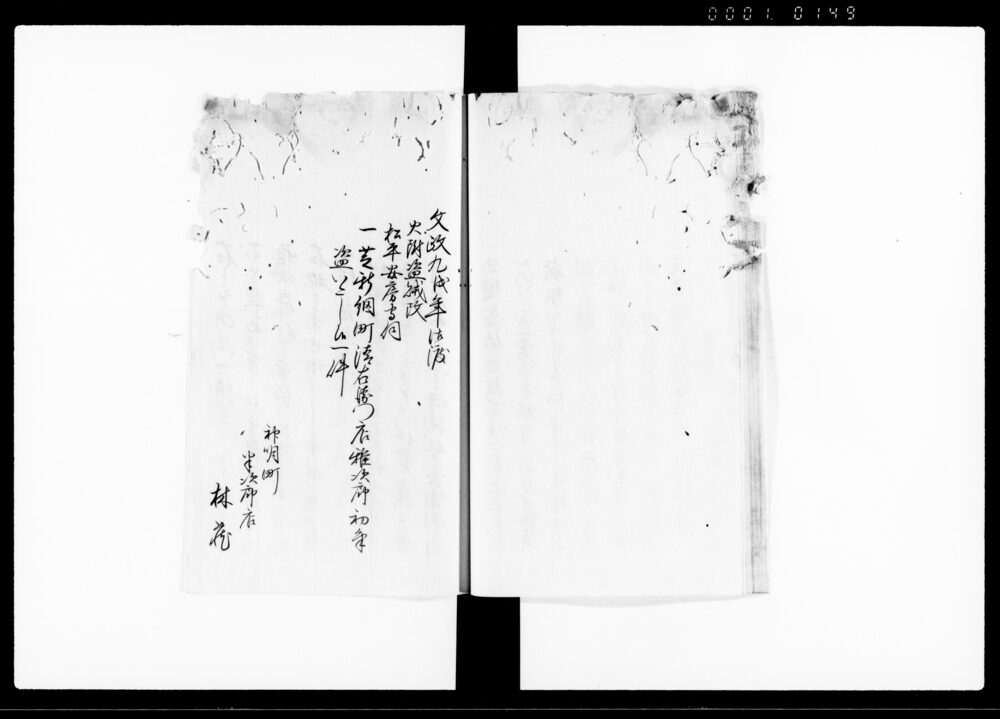 0001. 0149
文政九戌年御渡
火附盗賊改
松平安房守伺
一芝新網町清右衛門店雅次郎初筆
盗いたし候一件
神明町
半次郎店
林蔵